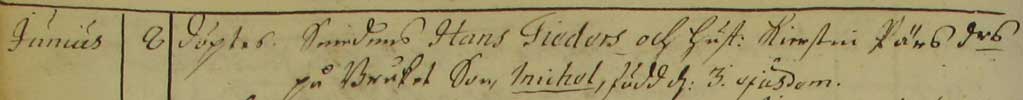 Junius 8 döptes. Smedens Hans Fieders och Hust: Kierstin Pärs drs
på Bruket Son, Michel, född d: 3. ejusdem.